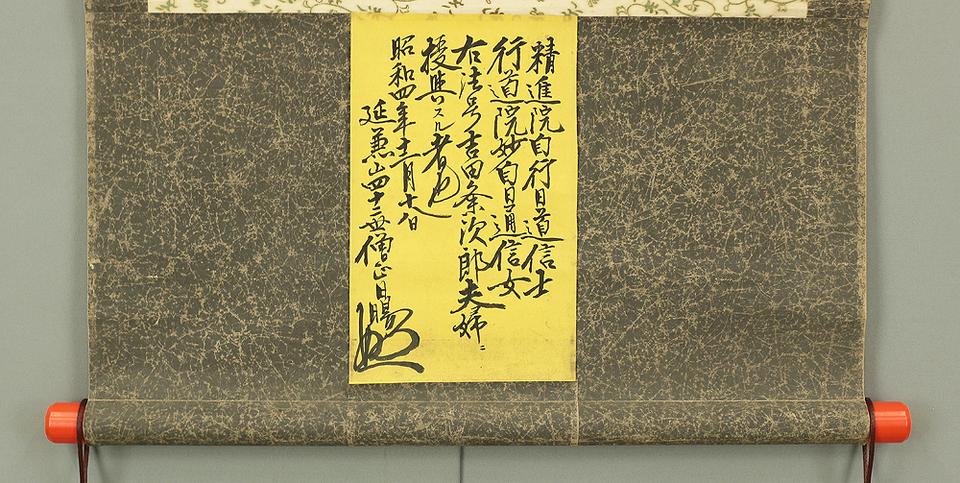 精進院自行日道信士
行道院妙自日通信女
右法号吉田条次郎夫婦ニ
授與スル者也
昭和四年十二月十八日
延兼山四十二世僧正日賜